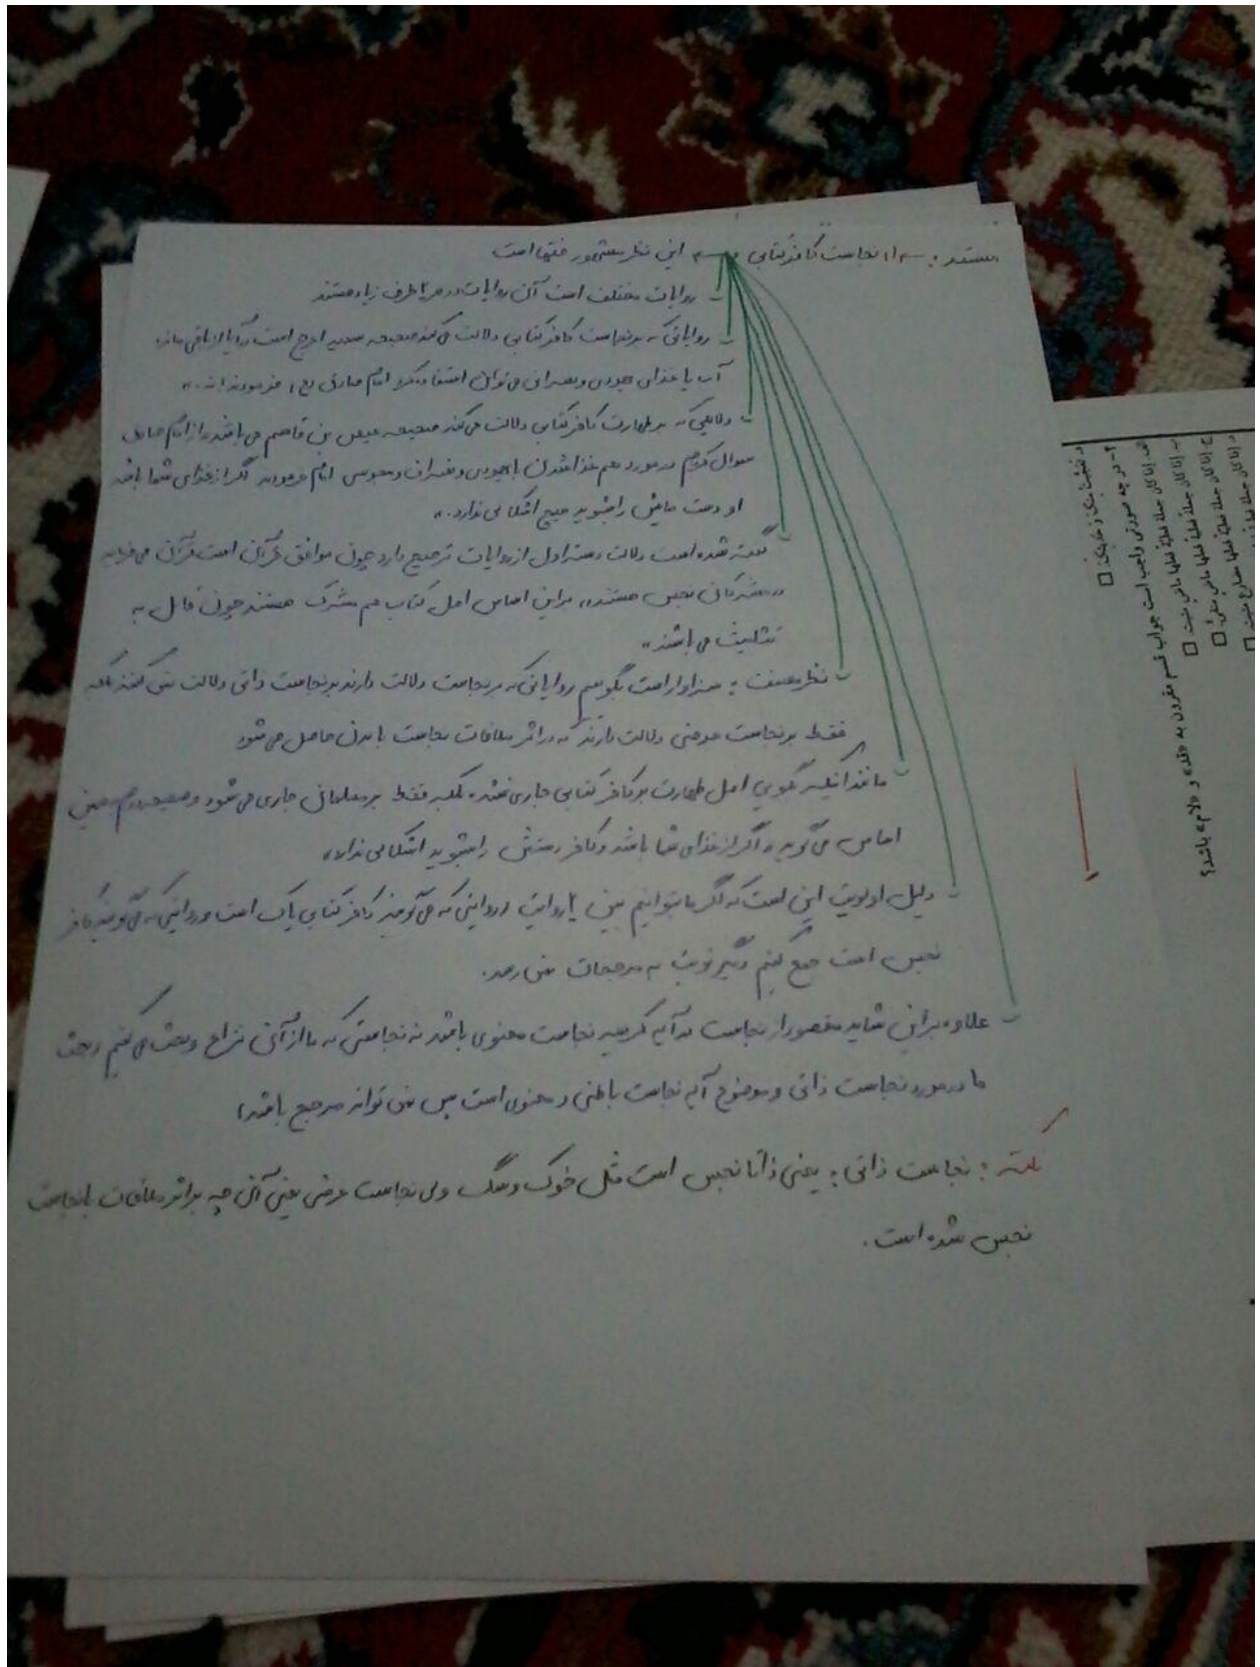 مستند: نجاست کافر کتابی این نظر مشهور فقها است
روایات مختلف است آن روایات در هر یا طرف زیاد هستند
روایاتی که بر نجاست کافر کتابی دلالت می کند صحیحه سعید اعرج است آیا از باقی مانده
آب یا غذای یهودی و نصرانی می توان استفاده کرد امام صادق (ع) فرمودند نه.»
دلایلی که بر طهارت کافر کتابی دلالت می کند صحیحه عیص بن قاسم می باشد از امام صادق
سوال کردم در مورد هم غذا شدن با یهودی و نصرانی و مجوسی امام فرمودند اگر از غذای شما باشد
او دست هایش را بشوید هیچ اشکالی ندارد.»
گفته شده است دلالت دسته اول از روایات ترجیح دارد چون موافق قرآن است قرآن می فرماید
«مشرکان نجس هستند» بر این اساس اهل کتاب هم مشرک هستند چون قائل به
تثلیث می باشند»
نظر مصنف: سزاوار است بگویم روایاتی که بر نجاست دلالت دارند بر نجاست ذاتی دلالت نمی کنند بلکه
فقط بر نجاست عرضی دلالت دارند که در اثر ملاقات نجاست با بدن حاصل می شود
مانند اینکه گویی اصل طهارت بر کافر کتابی جاری نشده بلکه فقط بر مسلمان جاری می شود و صحیحه دوم همین
اساس می گوید «اگر از غذای شما باشد و کافر دستش را بشوید اشکالی ندارد»
دلیل اولویت این است که اگر ما بتوانیم بین روایتی که می گویند کافر کتابی پاک است و روایتی که می گویند کافر
نجس است جمع کنیم دیگر نوبت به مرجحات نمی رسد.
علاوه بر این شاید مقصود از نجاست در آیه کریمه نجاست معنوی باشد نه نجاستی که ما از آن نزاع و بحث می کنیم بحث
ما در مورد نجاست ذاتی و موضوع آیه نجاست باطنی و معنوی است پس نمی تواند مرجح باشد»
نکته: نجاست ذاتی: یعنی ذاتا نجس است مثل خوک و سگ ولی نجاست عرضی یعنی آن چه بر اثر ملاقات با نجاست
نجس شده است.
۲- در چه صورتی واجب است جواب قسم مقرون به «قد» و «لام» باشد؟
الف. إذا كان جملة فعلية فعلها ماضي مثبت
ب. إذا كان جملة فعلية فعلها ماضي مثبت
ج. إذا كان جملة فعلية فعلها ماضي منفي